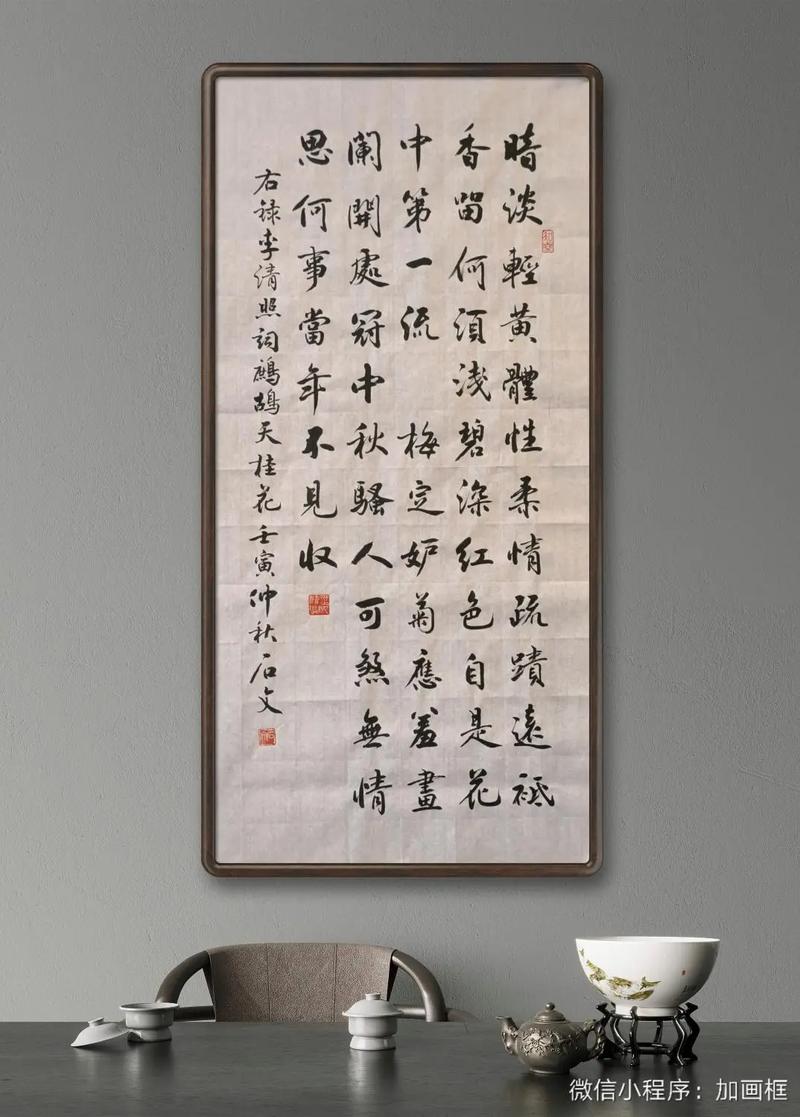 暗淡輕黄體性柔情疏蹟遠祗
香留何須淺碧深紅色自是花
中第一流 梅定妒菊應羞畫
闌開處冠中秋騷人可煞無情
思何事當年不見收
右録李清照詞鷓鴣天桂花壬寅仲秋石文
微信小程序：加画框